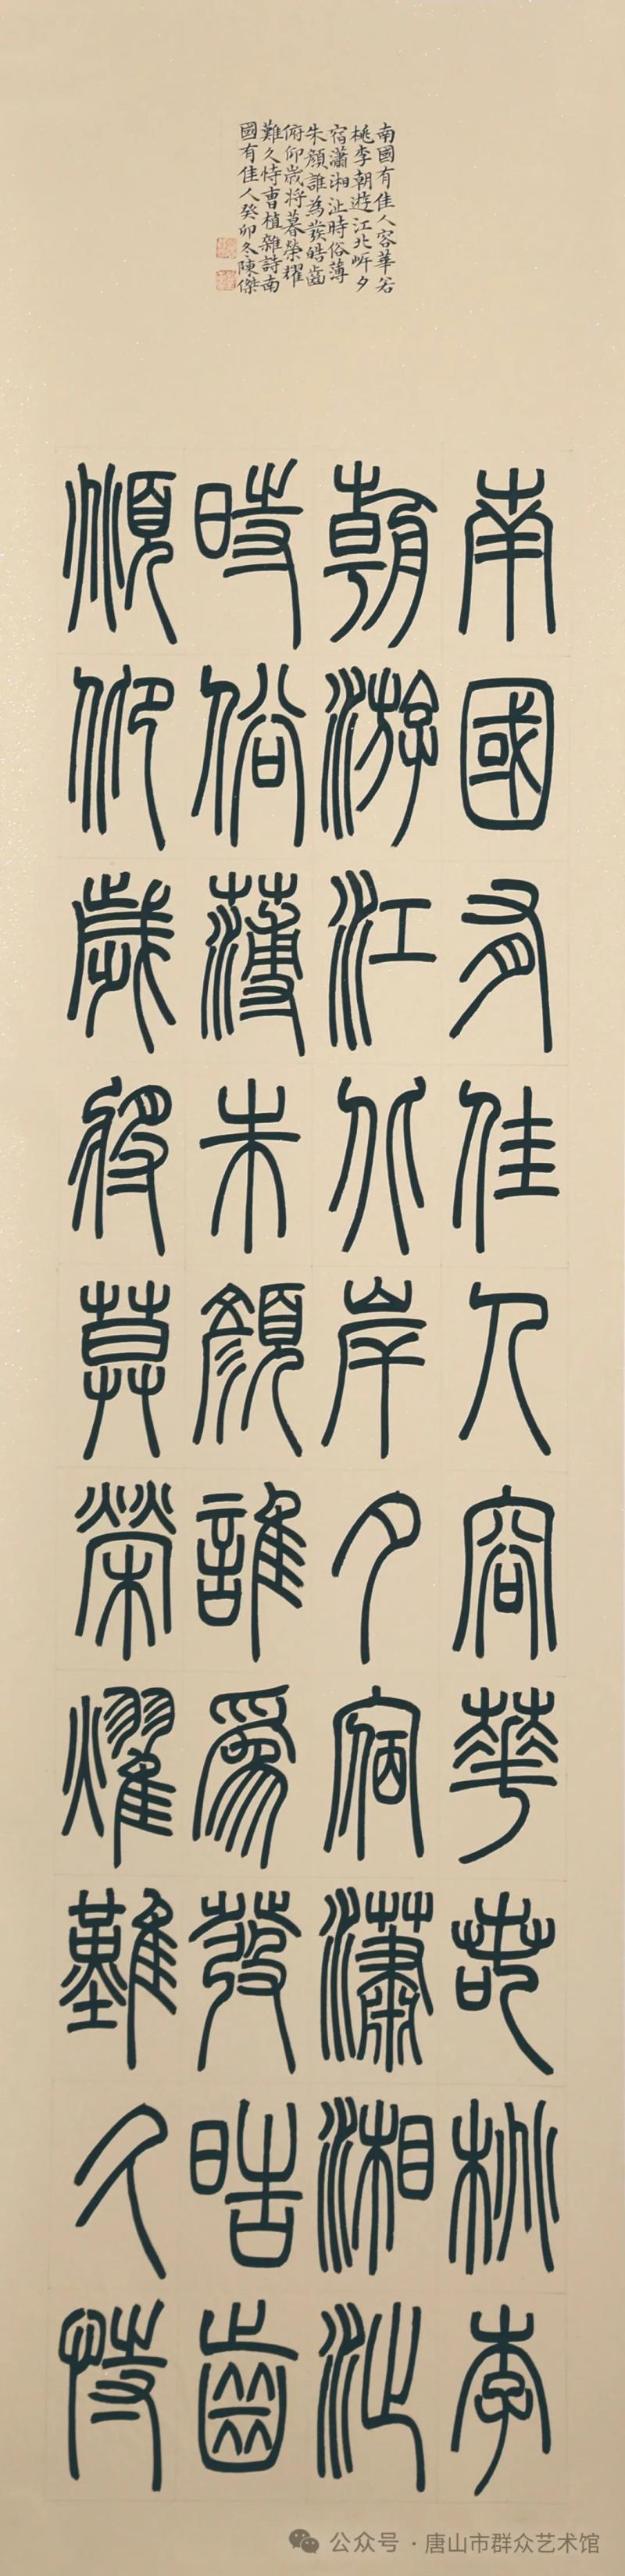 南國有佳人容華若
桃李朝遊江北岍夕
宿瀟湘沚時俗薄
朱顏誰為發皓齒
俯仰歲將暮榮耀
難久恃曹植雜詩南
國有佳人癸卯冬陳傑
南國有佳人容華若桃李
朝游江北岸夕宿瀟湘沚
時俗薄朱顏誰為發皓齒
頫仰歲將莫榮燿難久恃
公众号·唐山市群众艺术馆